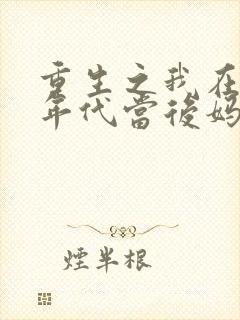 重生之我在
年代當後媽
煙半根